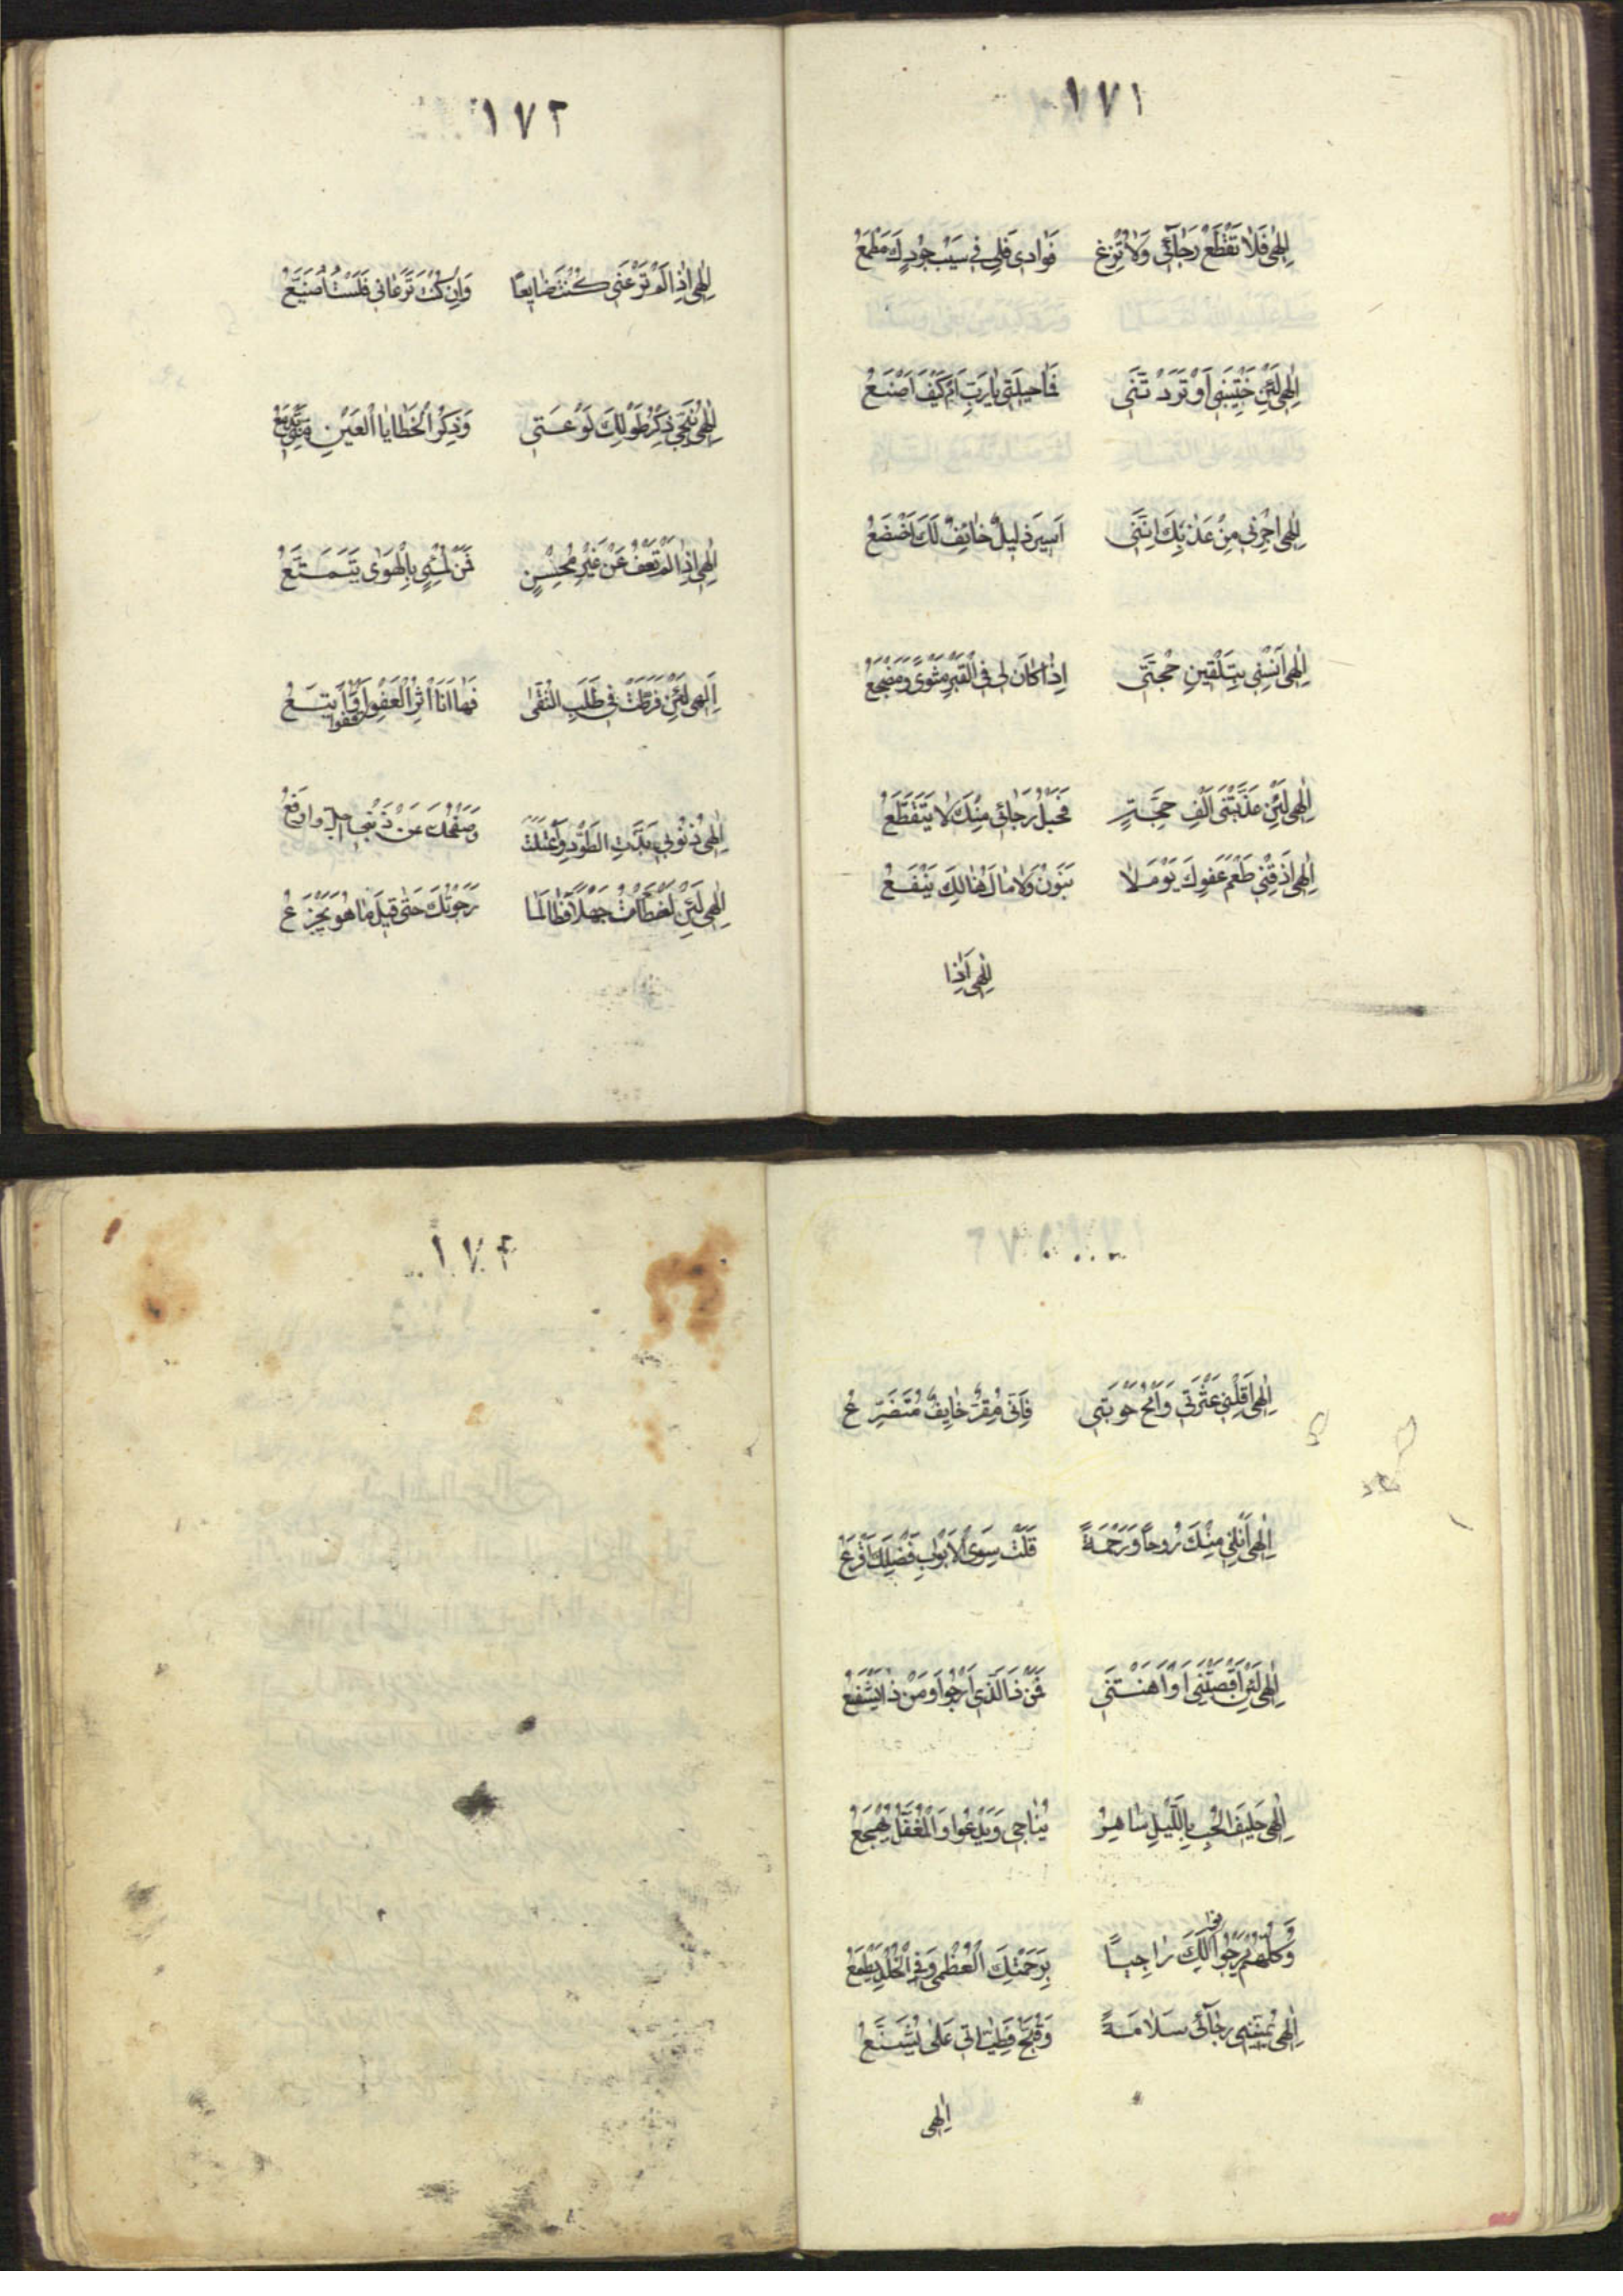 ١٧١
إلهي فلا تقطع رجائي ولا تزغ فوادي فلي في سيب جودك مطمع
إلهي لئن خيبتني أو تردتني فما حيلتي يا رب أم كيف أصنع
إلهي اجرني من عذبك انني اسير ذليل خائف لك اخضع
إلهي آنسني بتلقين حجتي إذا كان لي في القبر مثوى ومضجع
إلهي لئن عذبتني ألف حجة فحبل رجائي منك لا يتقطع
إلهي أذقني طعم عفوك يوم لا بنون ولا مال هنالك ينفع
إلهي اذا
١٧٢
إلهي إذا لم ترعني كنت ضايعا وان كنت ترعاني فلست أضيع
إلهي ينجي ذكر طولك لوعتي وذكر الخطايا العين
إلهي إذا لم تعف عن غير محسن فمن لمسئ بالهوى يتمتع
إلهي لئن فرطت في طلب التقى فها انا اثر العفو اقفوا واتبع
إلهي ذنوبي بذت الطود واعتلت وصفحك عن ذنبي اجل وارفع
إلهي لئن اخطات جهلا فطالما رجوتك حتى قيل ما هو يجزع
إلهي اقلني عثرتي وامح حوبتي فاني مقر خايف متضرع
إلهي أنلني منك روحا ورحمة فلست سوى لابواب فضلك أقرع
إلهي لئن اقصيتني أو أهنتني فمن ذا الذي ارجوا ومن ذا يشفع
إلهي حليف الحب بالليل ساهر يناجي ويدعوا والمغفل يهجع
وكلهم يرجوا نوالك راجيا برحمتك العظمى وفي الخلد يطمع
إلهي يمنيني رجائي سلامة وقبح خطيئاتي على يشنع
إلهي